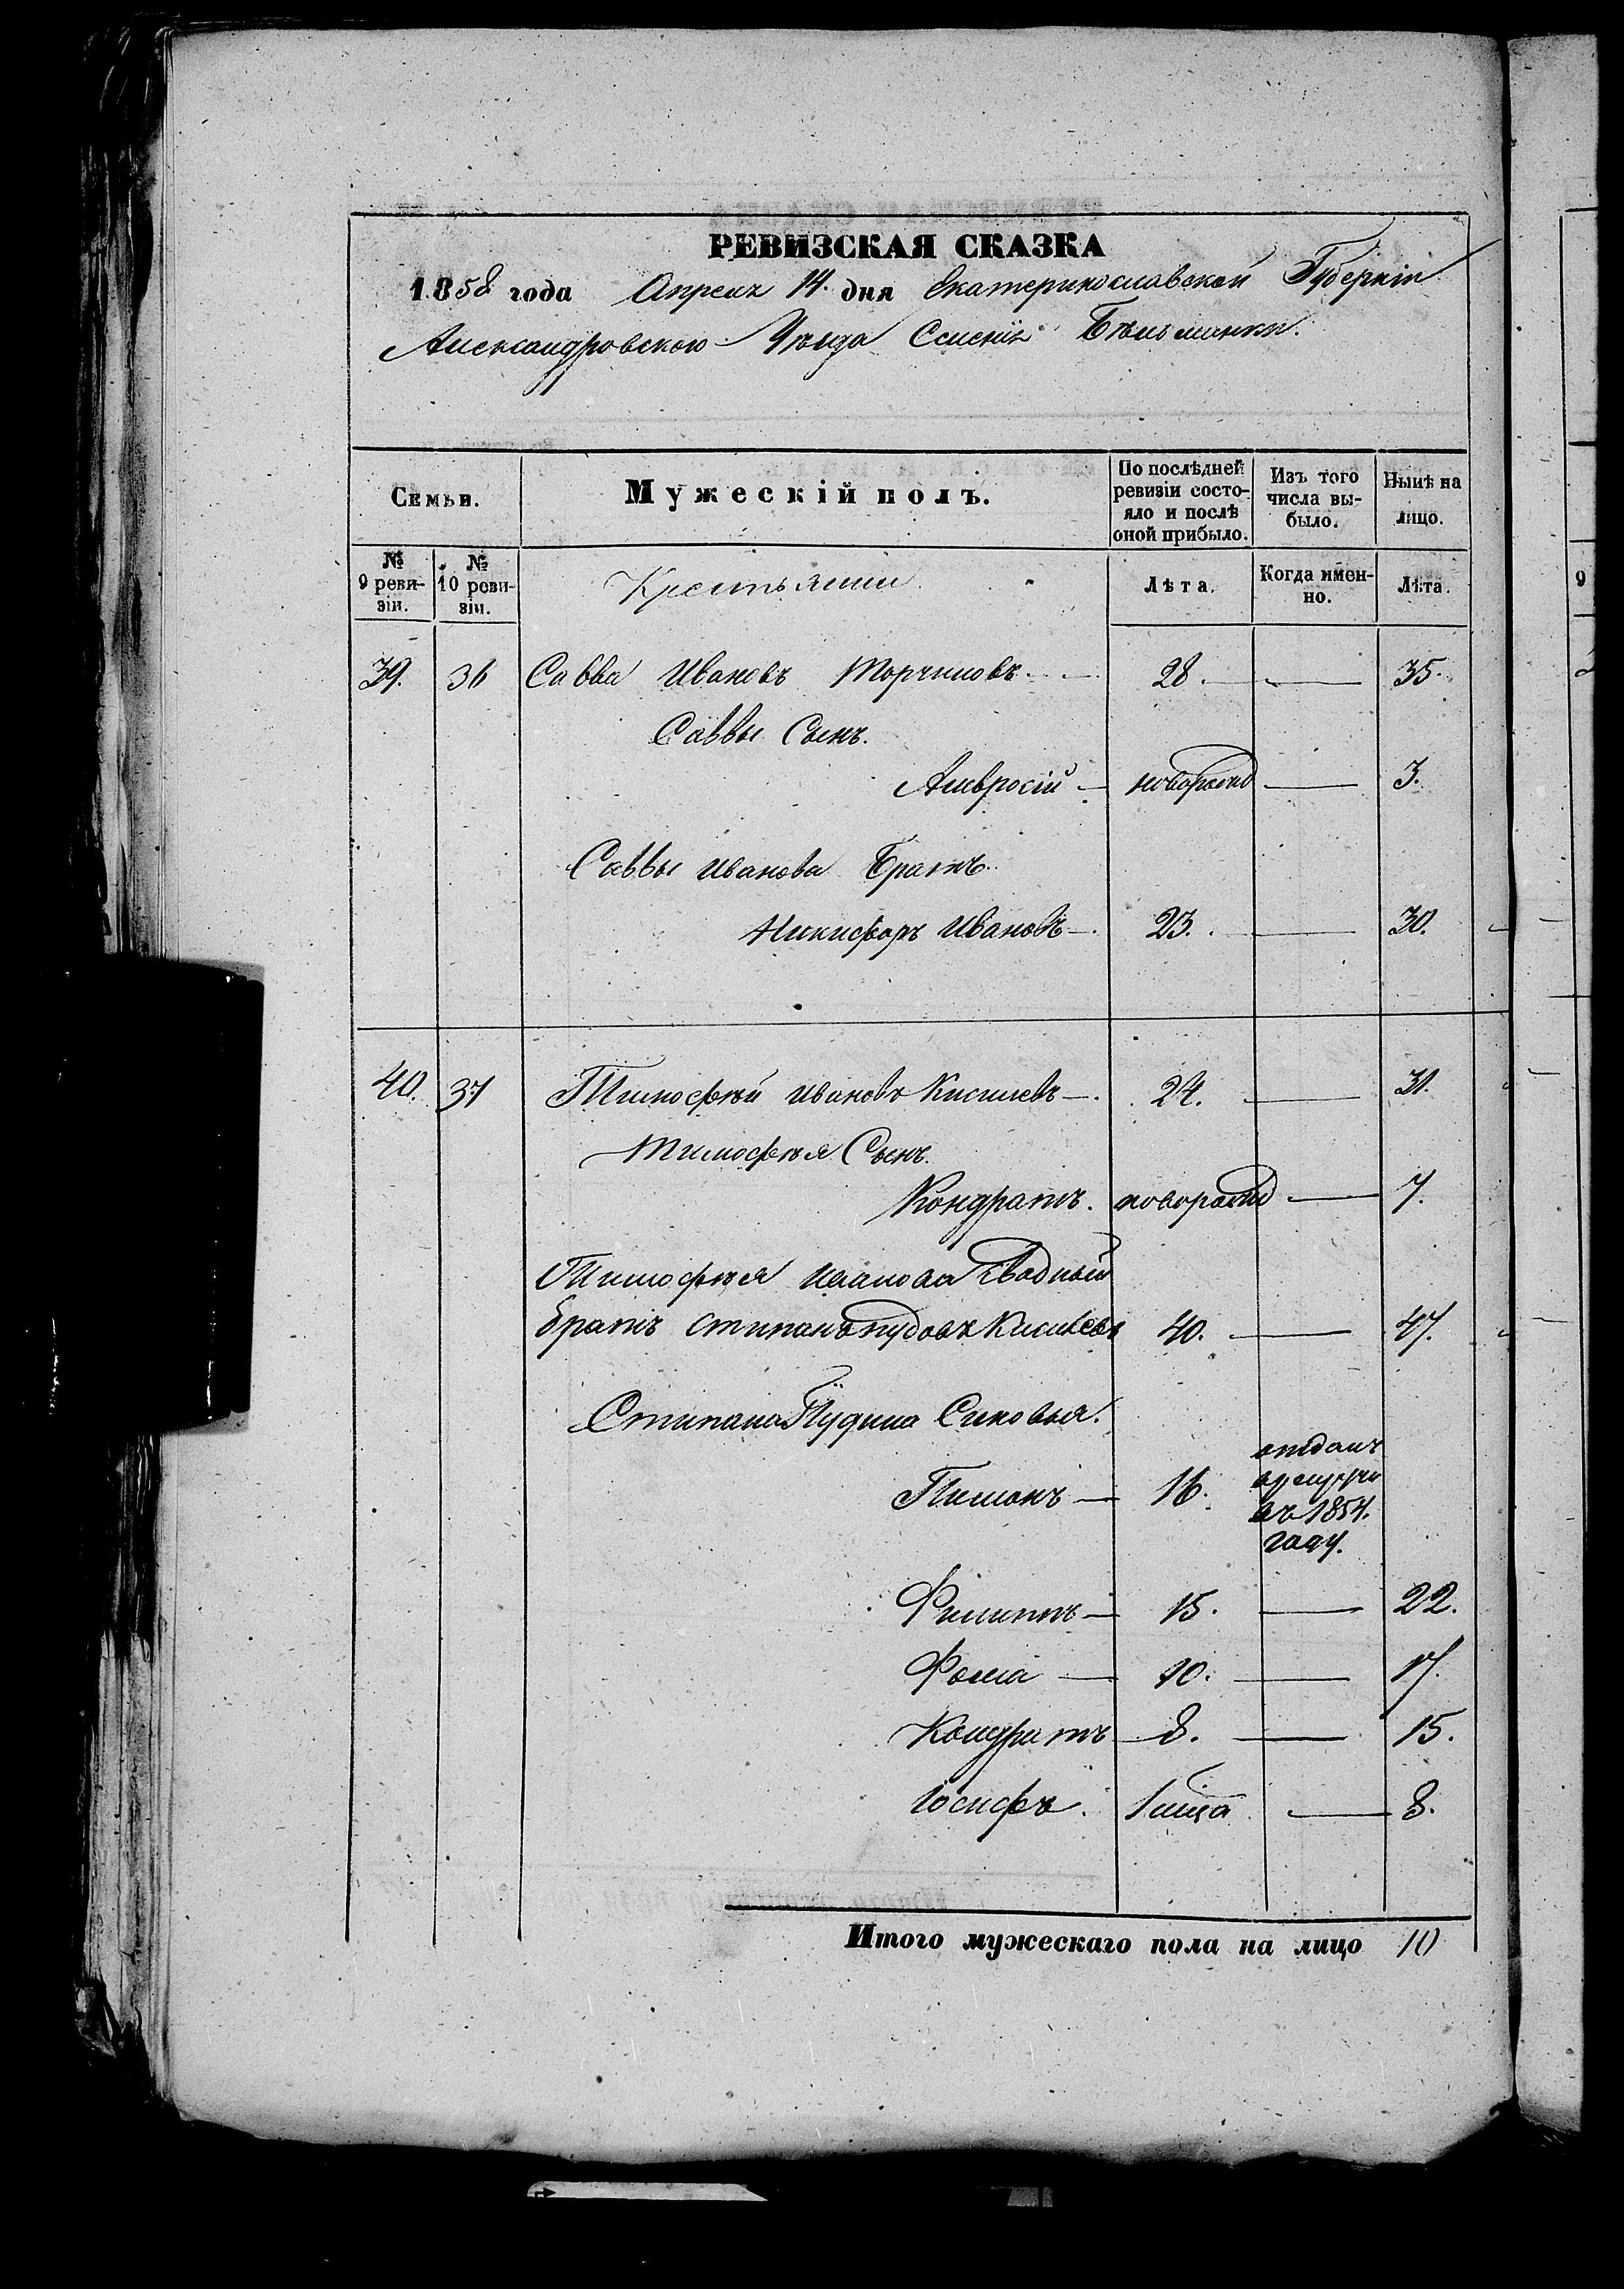 РЕВИЗСКАЯ СКАЗКА
1858 года Апреля 14. дня Екатеринославской Губерніи
Александровского Уѣзда Селенія Бѣльманки.
Семьи.
Мужескій полъ.
По послѣдней ревизіи состояло и послѣ оной прибыло.
Изъ того числа выбыло.
Нынѣ на лицо.
№ 9 ревизіи.
№ 10 ревизіи.
Крестьяни
Лѣта.
Когда именно.
Лѣта.
39. 36 Савва Ивановъ 28. — 35.
Саввы Сынъ.
Амвросій — новорожд — 3.
Саввы Иванова Братъ.
Никифоръ Ивановъ — 23. — 30.
40. 37 Тимофѣй Ивановъ Киселевъ — 24. — 31.
Тимофѣя Сынъ.
Кондратъ. новорожд — 7.
Тимофѣя Иванова Сводный
братъ Степанъ Пудовъ Киселевъ 40. — 47.
Степана Пудина Синовья.
Пимонъ — 16. отданъ
в рекруты
въ 1854.
году.
Филиппъ — 15. — 22.
Фома — 10. — 17.
Кондратъ 8. — 15.
Іосифъ. 1 — 8.
Итого мужескаго пола на лицо 10